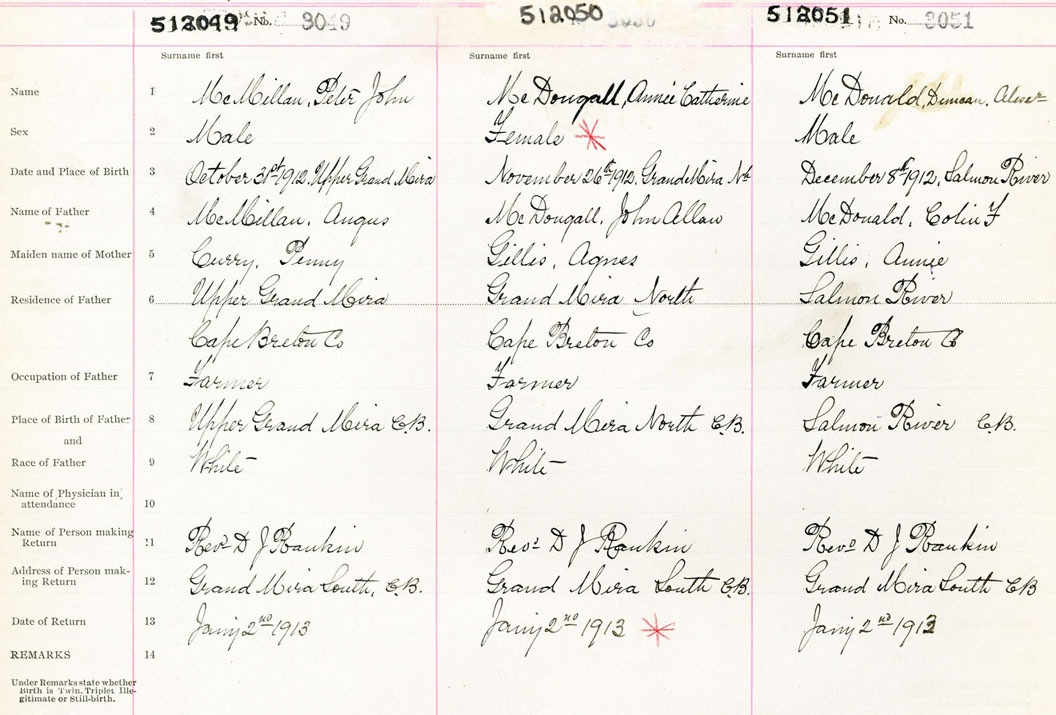 512049 No. 3049 512050 3050 512051 No. 3051
Surname first Surname first Surname first
Name 1 McMillan, Peter John McDougall, Annie Catherine McDonald, Duncan,
Sex 2 Male Female Male
Date and Place of Birth 3 October 31st 1912, Upper Grand Mira November 26th 1912, Grand Mira Nth December 8th 1912, Salmon River
Name of Father 4 McMillan, Angus McDougall, John Allan McDonald, Colin F
Maiden name of Mother 5 Curry, Penny Gillis, Agnes Gillis, Annie
Residence of Father 6 Upper Grand Mira Grand Mira North Salmon River
Cape Breton Co Cape Breton Co Cape Breton Co
Occupation of Father 7 Farmer Farmer Farmer
Place of Birth of Father 8 Upper Grand Mira C.B. Grand Mira North C.B. Salmon River C.B.
and
Race of Father 9 White White White
Name of Physician in
attendance 10
Name of Person making
Return 11 Revd D J Rankin Revd D J Rankin Revd D J Rankin
Address of Person mak-
ing Return 12 Grand Mira South, C.B. Grand Mira South C.B. Grand Mira South CB
Date of Return 13 Jany 2nd 1913 Jany 2nd 1913 Jany 2nd 1913
REMARKS 14
Under Remarks state whether
Birth is Twin, Triplet Ille-
gitimate or Still-birth.